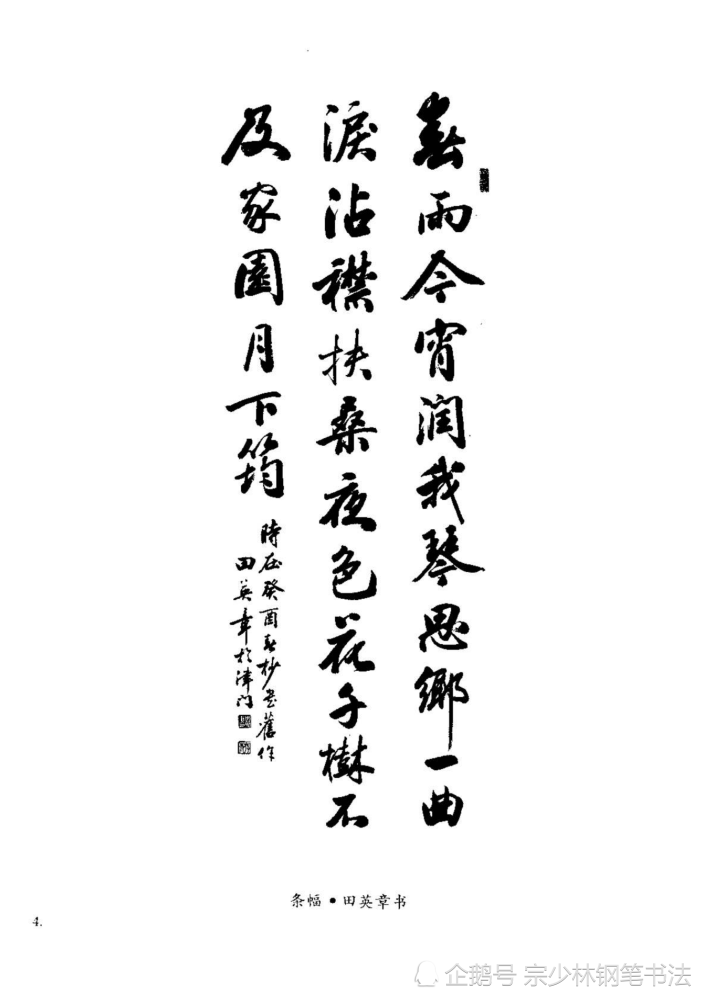 春雨今宵潤我琴思鄉一曲
淚沾襟扶桑夜色花千樹不
及家園月下筠
時在癸酉春杪書舊作
田英章於津門
条幅·田英章书
4.
企鹅号 宗少林钢笔书法